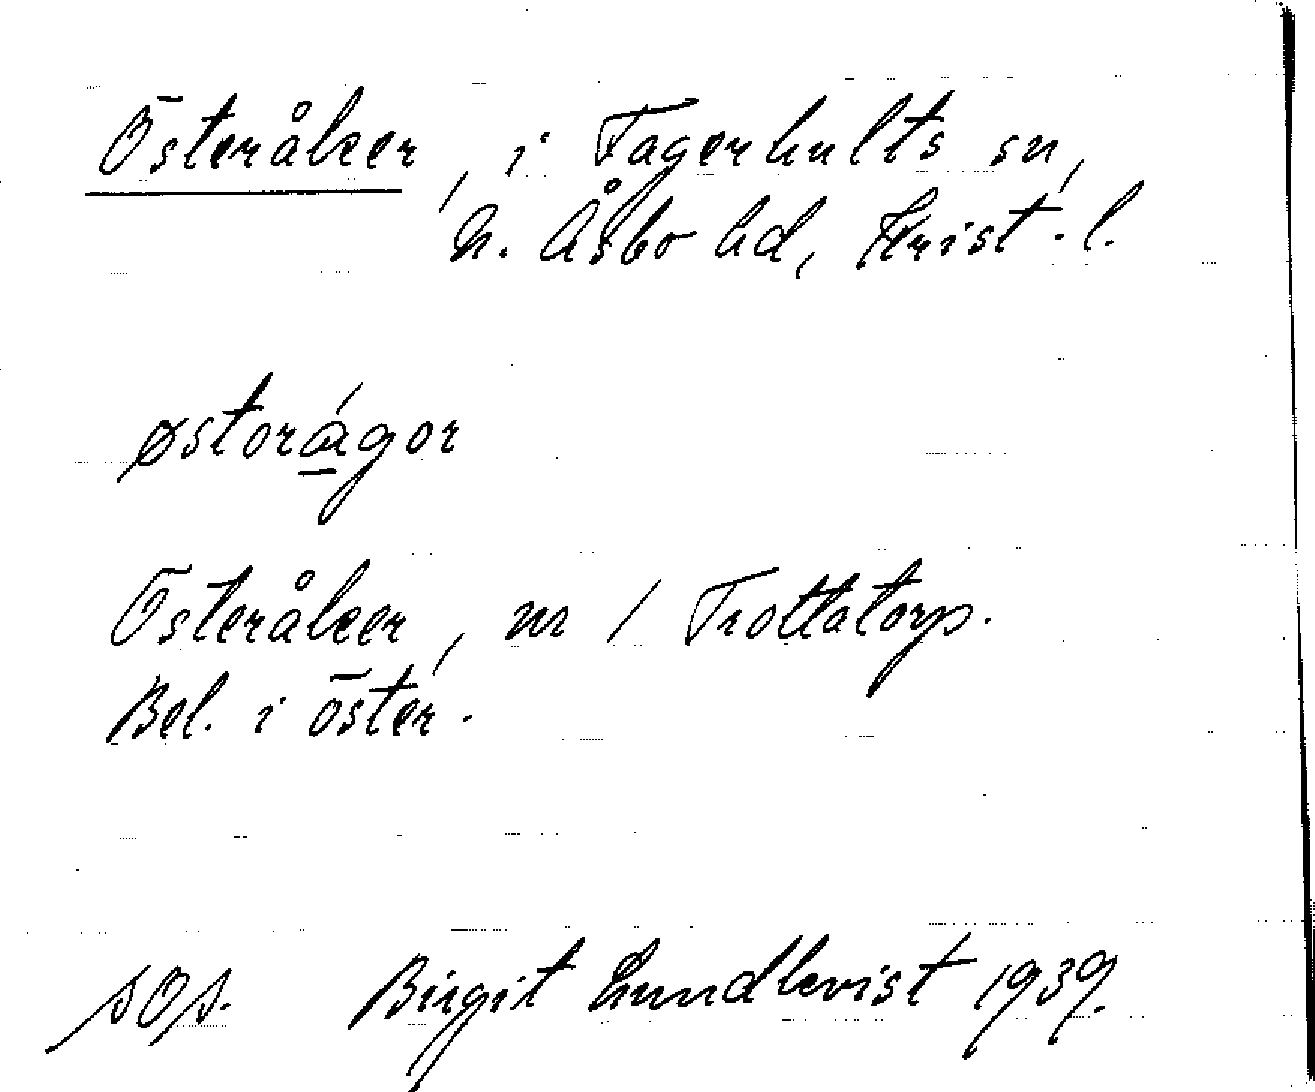 Österåker, i Fagerhults sn,
N. Åsbo hd, Krist. l.
østorágor
Österåker, nr 1 Trottatorp.
Bel. i öster.
sOs. Birgit Lundkvist 1939.